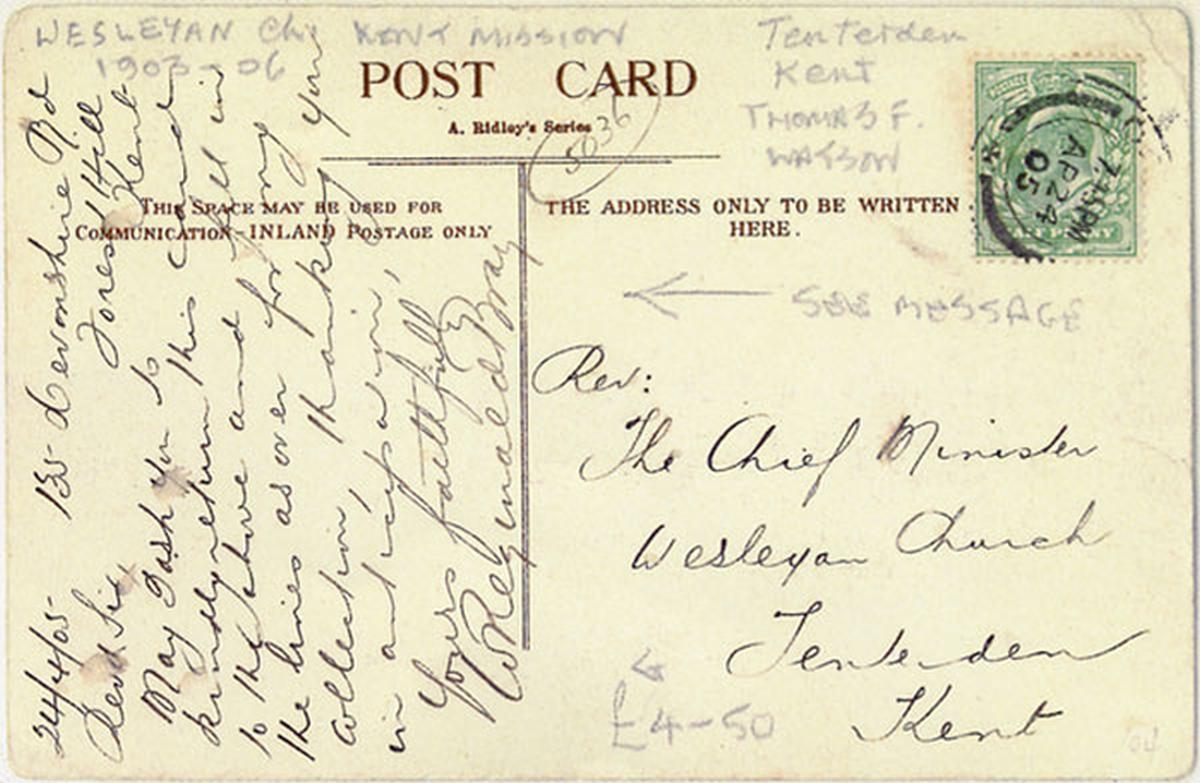 WESLEYAN CH. KENT MISSION
1903-06
Tenterden
Kent
THOMAS F.
WATSON
POST CARD
A. Ridley's Series
5036
THIS SPACE MAY BE USED FOR
COMMUNICATION-INLAND POSTAGE ONLY
THE ADDRESS ONLY TO BE WRITTEN
HERE.
7.15PM
AP 24
05
24/4/05- 135 Devonshire Rd
Forest Hill
Kent
Revd Sir,
May I ask you to
kindly return this card
to the above and fill in
the lines as over for my
collection, thanking you
in anticipation,
Yours faithfully
W Reginald Bray
← SEE MESSAGE
Rev:
The Chief Minister
Wesleyan Church
Tenterden
Kent
£4-50